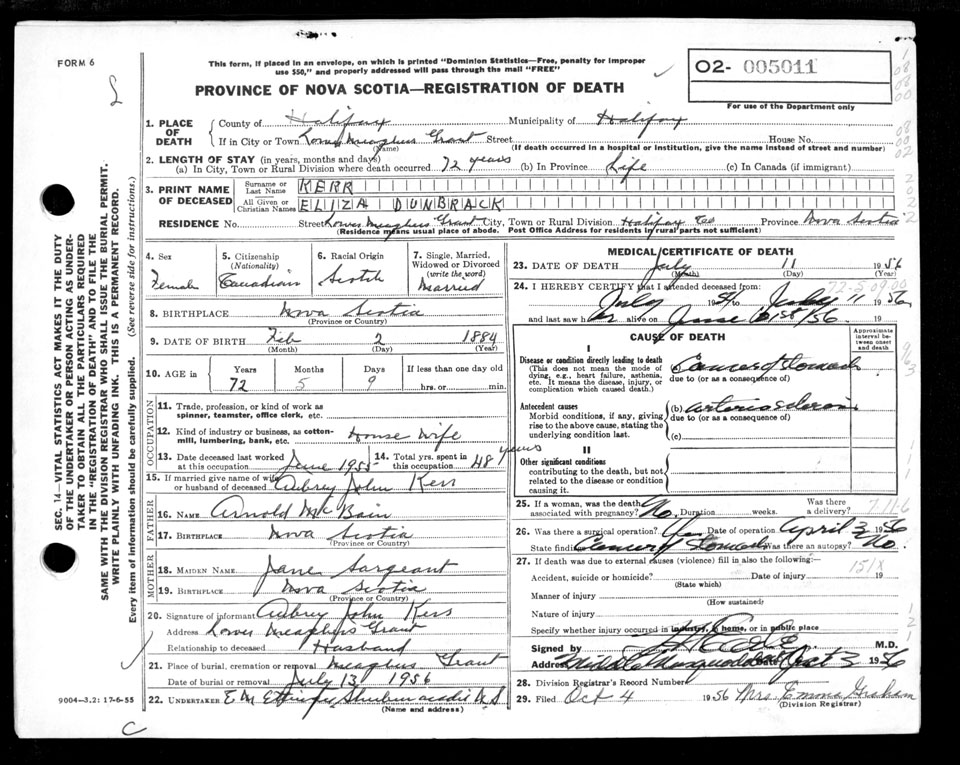 FORM 6
This form, if placed in an envelope, on which is printed "Dominion Statistics—Free, penalty for improper
use $50," and properly addressed will pass through the mail "FREE"
PROVINCE OF NOVA SCOTIA—REGISTRATION OF DEATH
02- 005011
For use of the Department only
1. PLACE OF DEATH
County of Halifax Municipality of Halifax
If in City or Town Lower Meaghers Grant Street House No.
(Name) (If death occurred in a hospital or Institution, give the name instead of street and number)
2. LENGTH OF STAY (in years, months and days)
(a) In City, Town or Rural Division where death occurred 72 years (b) In Province Life (c) In Canada (if immigrant)
3. PRINT NAME OF DECEASED
Surname or Last Name KERR
All Given or Christian Names ELIZA DUNBRACK
RESIDENCE No. Street Lower Meaghers Grant City, Town or Rural Division Halifax Co Province Nova Scotia
(Residence means usual place of abode. Post Office Address for residents in rural parts not sufficient)
4. Sex
Female
5. Citizenship
(Nationality)
Canadian
6. Racial Origin
Scotch
7. Single, Married, Widowed or Divorced
(write the word)
Married
8. BIRTHPLACE Nova Scotia
(Province or Country)
9. DATE OF BIRTH Feb 2 1884
(Month) (Day) (Year)
10. AGE in Years Months Days If less than one day old
72 5 9 hrs. or min.
OCCUPATION
11. Trade, profession, or kind of work as
spinner, teamster, office clerk, etc.
12. Kind of industry or business, as cotton-
mill, lumbering, bank, etc. House Wife
13. Date deceased last worked
at this occupation June 1955
14. Total yrs. spent in
this occupation 48 years
15. If married give name of wife
or husband of deceased Aubrey John Kerr
FATHER
16. NAME Arnold McBain
17. BIRTHPLACE Nova Scotia
(Province or Country)
MOTHER
18. MAIDEN NAME Jane Sargeant
19. BIRTHPLACE Nova Scotia
(Province or Country)
20. Signature of informant Aubrey John Kerr
Address Lower Meaghers Grant
Relationship to deceased Husband
21. Place of burial, cremation or removal Meaghers Grant
Date of burial or removal July 13 1956
22. UNDERTAKER E M Shubenacadie N S
(Name and address)
MEDICAL CERTIFICATE OF DEATH
23. DATE OF DEATH July 11 1956
(Month) (Day) (Year)
24. I HEREBY CERTIFY that I attended deceased from:
July to July 11 1956
and last saw her alive on June 21st/56
72-5 09 00
CAUSE OF DEATH
Approximate interval between onset and death
I
Disease or condition directly leading to death
(This does not mean the mode of
dying, e.g., heart failure, asthenia,
etc. It means the disease, injury, or
complication which caused death.)
Cancer of Stomach
due to (or as a consequence of)
Antecedent causes
Morbid conditions, if any, giving
rise to the above cause, stating the
underlying condition last.
(b) Arteriosclerosis
due to (or as a consequence of)
(c)
II
Other significant conditions
contributing to the death, but not
related to the disease or condition
causing it.
25. If a woman, was the death
associated with pregnancy? No. Duration weeks. Was there a delivery?
26. Was there a surgical operation? Yes Date of operation April 3 1956
State findings Cancer of Stomach Was there an autopsy? No.
27. If death was due to external causes (violence) fill in also the following:
151X
Accident, suicide or homicide? Date of injury 19
(State which)
Manner of injury
(How sustained)
Nature of injury
Specify whether injury occurred in industry, in home, or in public place
Signed by M.D.
Address Middle Musquodoboit Date Oct 3 1956
28. Division Registrar's Record Number
29. Filed Oct 4 1956 Mrs. Emma Graham
(Division Registrar)
9004—3.2: 17-6-55
C
SEC. 14—VITAL STATISTICS ACT MAKES IT THE DUTY
OF THE UNDERTAKER OR PERSON ACTING AS UNDER-
TAKER TO OBTAIN ALL THE PARTICULARS REQUIRED
IN THE "REGISTRATION OF DEATH" AND TO FILE THE
SAME WITH THE DIVISION REGISTRAR WHO SHALL ISSUE THE BURIAL PERMIT.
WRITE PLAINLY WITH UNFADING INK. THIS IS A PERMANENT RECORD.
Every item of information should be carefully supplied. (See reverse side for instructions.)